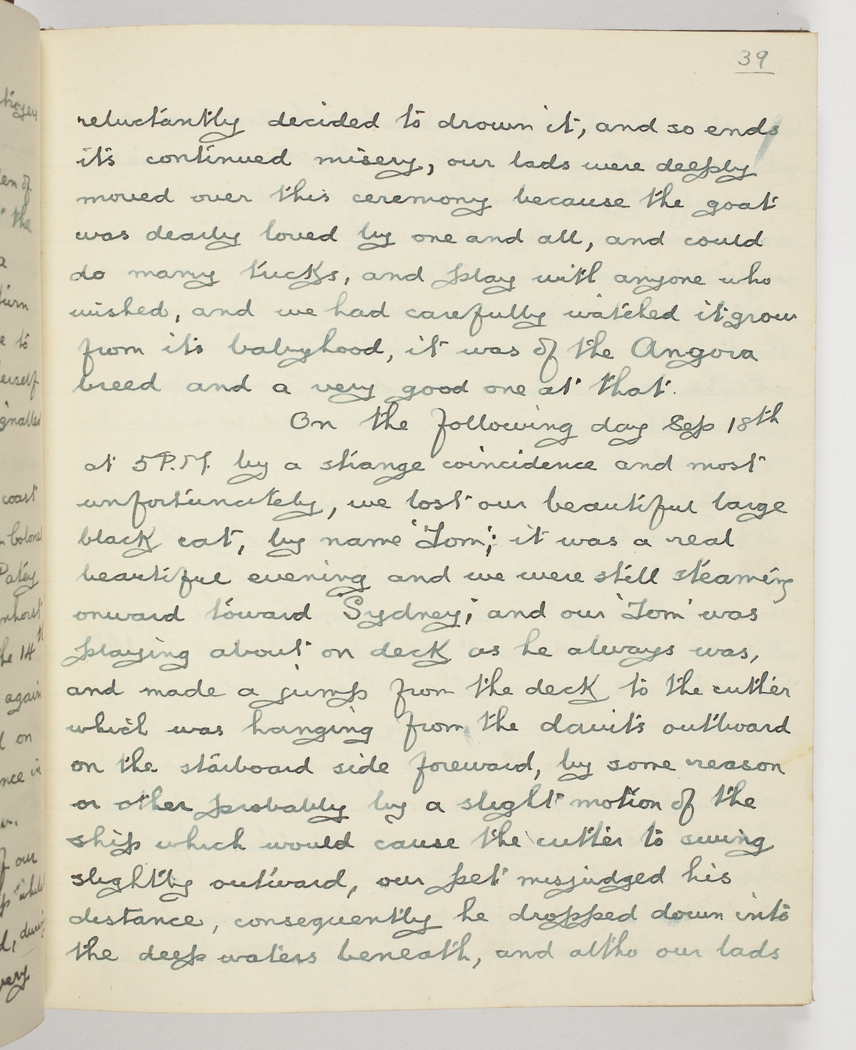 39
reluctantly decided to drown it, and so ends
its continued misery, our lads were deeply
moved over this ceremony because the goat
was dearly loved by one and all, and could
do many tricks, and play with anyone who
wished, and we had carefully watched it grow
from its babyhood, it was of the Angora
breed and a very good one at that.
On the following day Sep 18th
at 5 P.M. by a strange coincidence and most
unfortunately, we lost our beautiful large
black cat, by name 'Tom'; it was a real
beautiful evening and we were still steaming
onward toward Sydney; and our 'Tom' was
playing about on deck as he always was,
and made a jump from the deck to the cutter
which was hanging from the davits outboard
on the starboard side foreward, by some reason
or other probably by a slight motion of the
ship which would cause the cutter to swing
slightly outward, our pet misjudged his
distance, consequently he dropped down into
the deep waters beneath, and altho our lads
en of
the
a
turn
e to
gnalled
coast
Colonel
Patey
the 14th
again
d on
nce in
of our
very